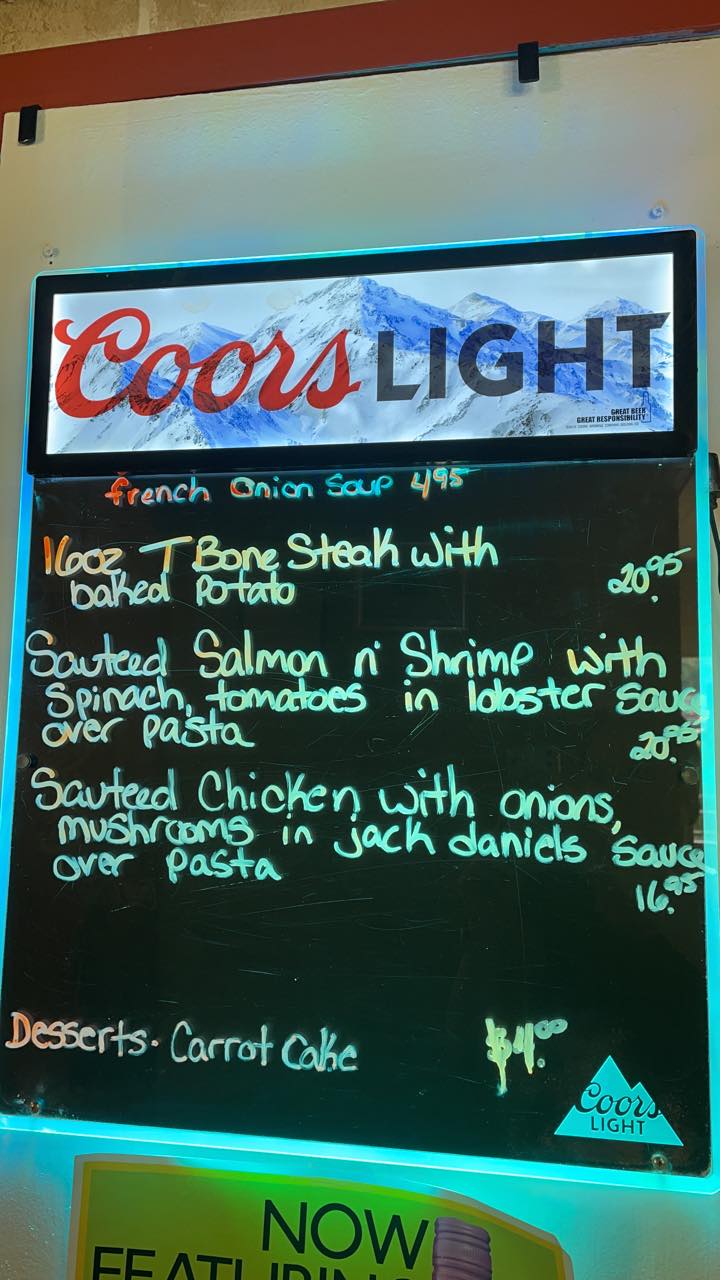 Coors LIGHT
GREAT BEER
GREAT RESPONSIBILITY
french Onion Soup 4.95
16oz T Bone Steak with
baked Potato 20.95
Sauteed Salmon n' Shrimp with
Spinach, tomatoes in lobster sauce
over pasta 20.95
Sauteed Chicken with onions,
mushrooms in jack daniels sauce
over pasta
16.95
Desserts. Carrot Cake $4.00
Coors
LIGHT
NOW
FEATURING